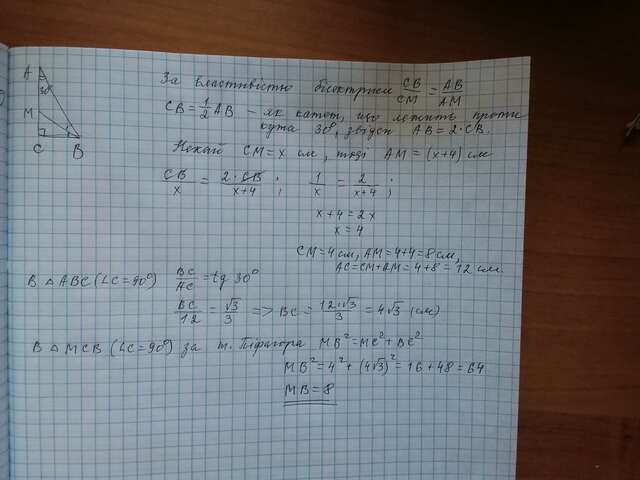 A
30°
M
C
B
За властивістю бісектриси CB/CM = AB/AM
CB = 1/2 AB - як катет, що лежить проти
кута 30°, звідси AB = 2·CB.
Нехай CM = x см, тоді AM = (x+4) см
CB/x = 2·CB/x+4 ; 1/x = 2/x+4 ;
x+4 = 2x
x = 4
CM = 4 см, AM = 4+4 = 8 см,
AC = CM + AM = 4+8 = 12 см.
В △ ABC (∠C = 90°) BC/AC = tg 30°
BC/12 = √3/3 => BC = 12·√3/3 = 4√3 (см)
В △ MCB (∠C = 90°) за т. Піфагора MB² = MC² + BC²
MB² = 4² + (4√3)² = 16 + 48 = 64
MB = 8